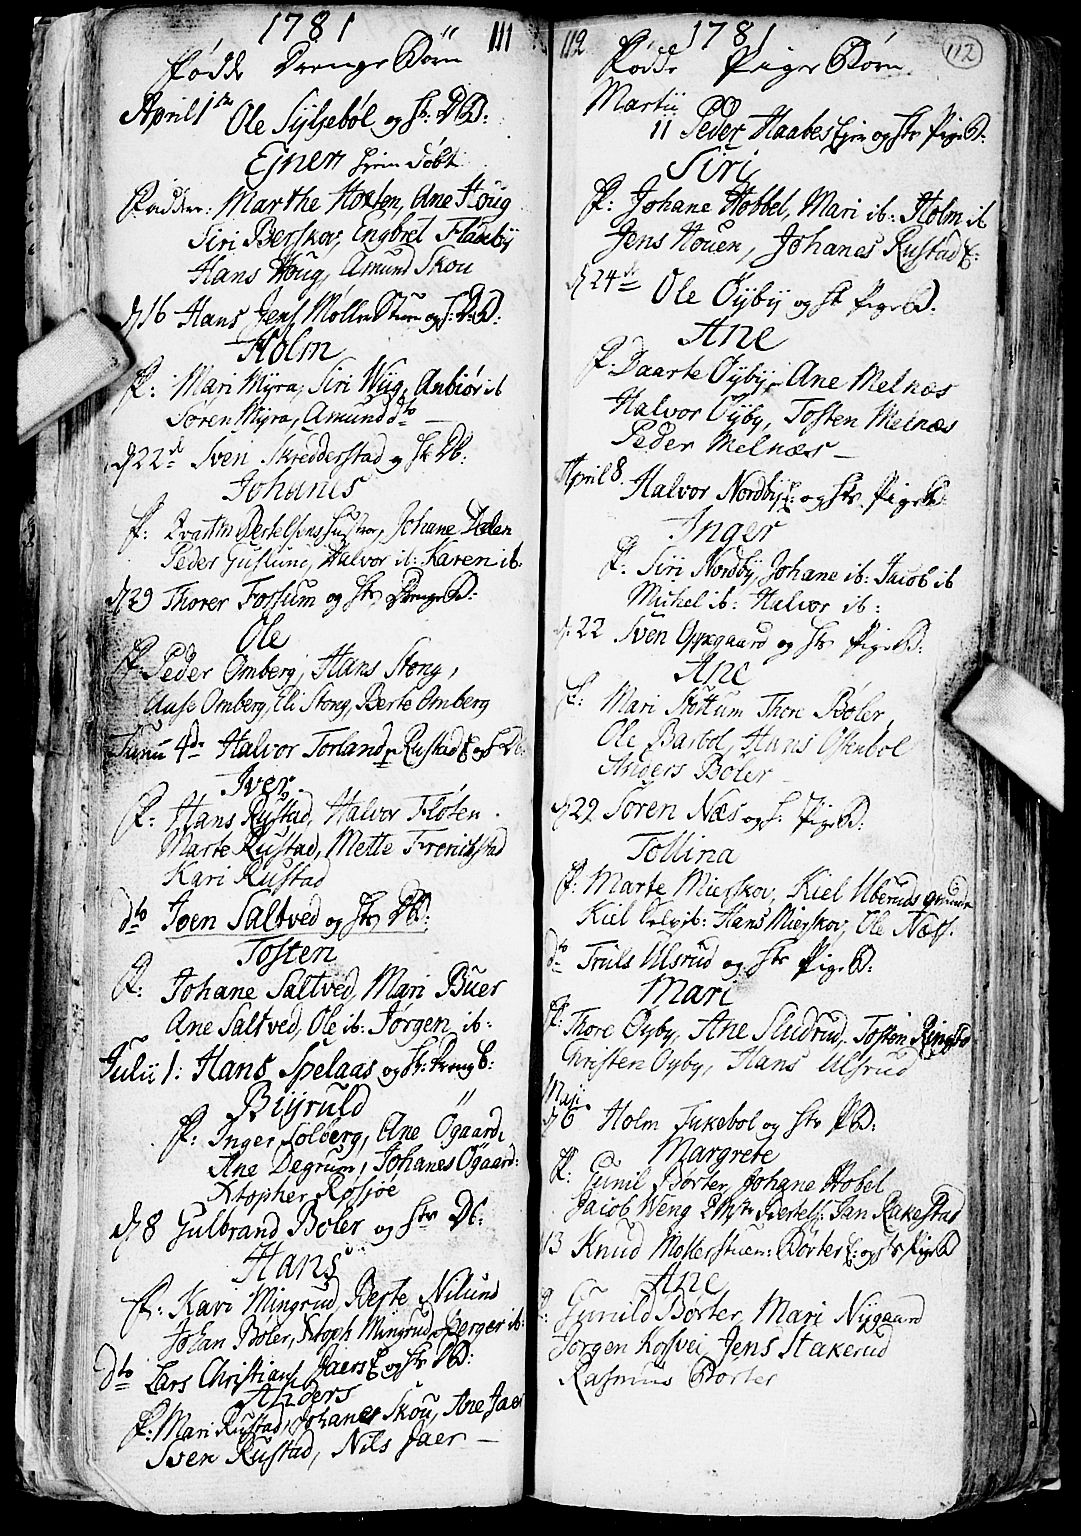 1781 111
Fødde Drenge Børn
April 1ste Ole Syljebøl og Hr: DB:
Ejner hjem døbt
Faddere: Marthe Hoxten, Ane Houg
Siri Berskov, Engbret Flateby
Hans Houg, Amund Skou
d 16 Hans Jens Mølle Stuen og H: D:B:
Holm
F: Mari Myra, Siri Wiig, Anbiør ib
Søren Myra, Amund dto —
d 22de Sven Skredderstad og H: DB:
Johanes
F: Johane Dalen
Peder Guslund, Halvor ib: Karen ib.
d 29 Thorer Fossum og Hr Drenge B:
Ole
F: Peder Omberg, Hans Stong,
Aase Omberg, Eli Stong, Berte Omberg
Junii 4de Halvor Torland Rustad E og H DB:
Iver
F: Hans Rustad, Halvor Fløten.
Marte Rustad, Mette
Kari Rustad
dto Joen Saltved og Hr DB:
Tosten
F: Johane Saltved, Mari Buer
Ane Saltved, Ole ib: Jørgen ib:
Julii 1: Hans Spelaas og Hr: Dreng B:
Biyruld
F: Inger Solberg, Ane Ögaard:
Ane Degrum, Johanes Ögaard:
Xtopher Rosjøe
d 8 Gulbrand Boler og Hr DB:
Hans
F: Kari Mingrud, Berte Nilund
Johan Bøler, Xtoph Mingrud, Børger ib:
dto Lars Christians Jaers E og Hr DB:
Anders
F: Mari Rustad, Johanes Skou, Ane Jaer
Sven Rustad, Nils Jaer —
112 1781 112
Fødde Pige Børn
Martii
11 Peder Haabes Ejen og Hr Pige B:
Siri
F: Johane Hobbel, Mari ib: Holm ib
Jens Houen, Johanes Rustad E:
d 24de Ole Oyby og Hr Pige B:
Ane
F: Daarte Oyby, Ane Melnæs
Halvor Oyby, Tosten Melnæs
Peder Melnæs —
April 8. Halvor Nordby E: og Hr Pige B:
Inger
F: Siri Nordby, Johane ib: Jacob ib
Michel ib: Halvor ib:
d. 22 Sven Oppegaard og Hr Pige B:
Ane
F: Mari Thore Bøler,
Ole Barbøl, Hans Ostenbøl
Anders Boler
d 29. Soren Næs og H: Pige B:
Tollina
F: Marte Mierskov, Kiel Uberuds
Kiel ib: Hans Mierskov, Ole Næss.
dto Truls Ulsrud og Hr Pige B:
Mari
F: Thore Oyby, Ane Sludrud, Tosten
Christen Oyby, Hans Ulsrud
Maji
d 6 Holm Tukebol og Hr PB:
Margrete
F: Gunil Børter, Johane Hobel
Jacob Weng Jan Rakestad
13 Knud Møllerstuen: Børter E: og Hr Pige B
Ane
F: Gunild Børter, Mari Nygaard
Jørgen Jens Stakerud
Rasmus Børter